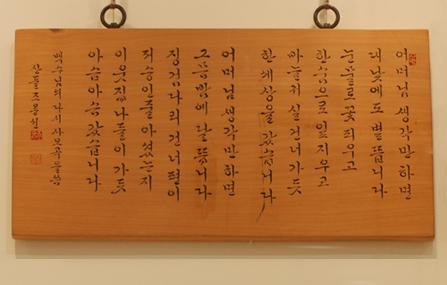 어머님 생각만 하면
대낮에도 별 뜹니다
눈물로 꽃 피우고
한숨으로 잎 지우고
바늘귀 실 건너가듯
한세상을 갔습니다
어머님 생각만 하면
그믐밤에 달 뜹니다
징검다리 건너편이
저승인줄 아셨는지
이웃집 나들이 가듯
아슴아슴 갔습니다
다시 사모곡
산돌